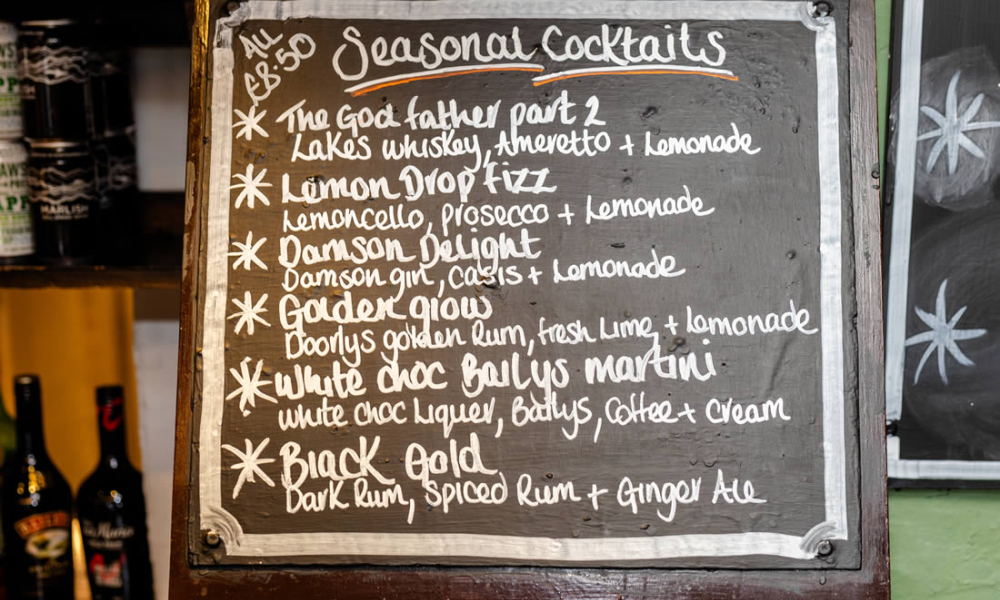 ALL
£8.50
Seasonal Cocktails
The God father part 2
Lakes whiskey, Ameretto + Lemonade
Lemon Drop fizz
Lemoncello, prosecco + Lemonade
Damson Delight
Damson gin, casis + Lemonade
Golden glow
Doorlys golden Rum, fresh Lime, + Lemonade
White choc Bailys martini
white choc Liquer, Bailys, Coffee + Cream
Black Gold
Dark Rum, Spiced Rum + Ginger Ale
MARLISH
BAILEYS